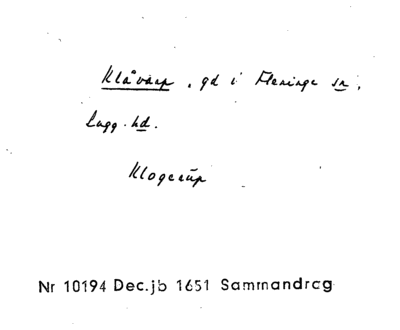 Klåvarp, gd i Fleninge sn,
Lugg. hd.
Klogerup
Nr 10194 Dec.jb 1651 Sammandrag